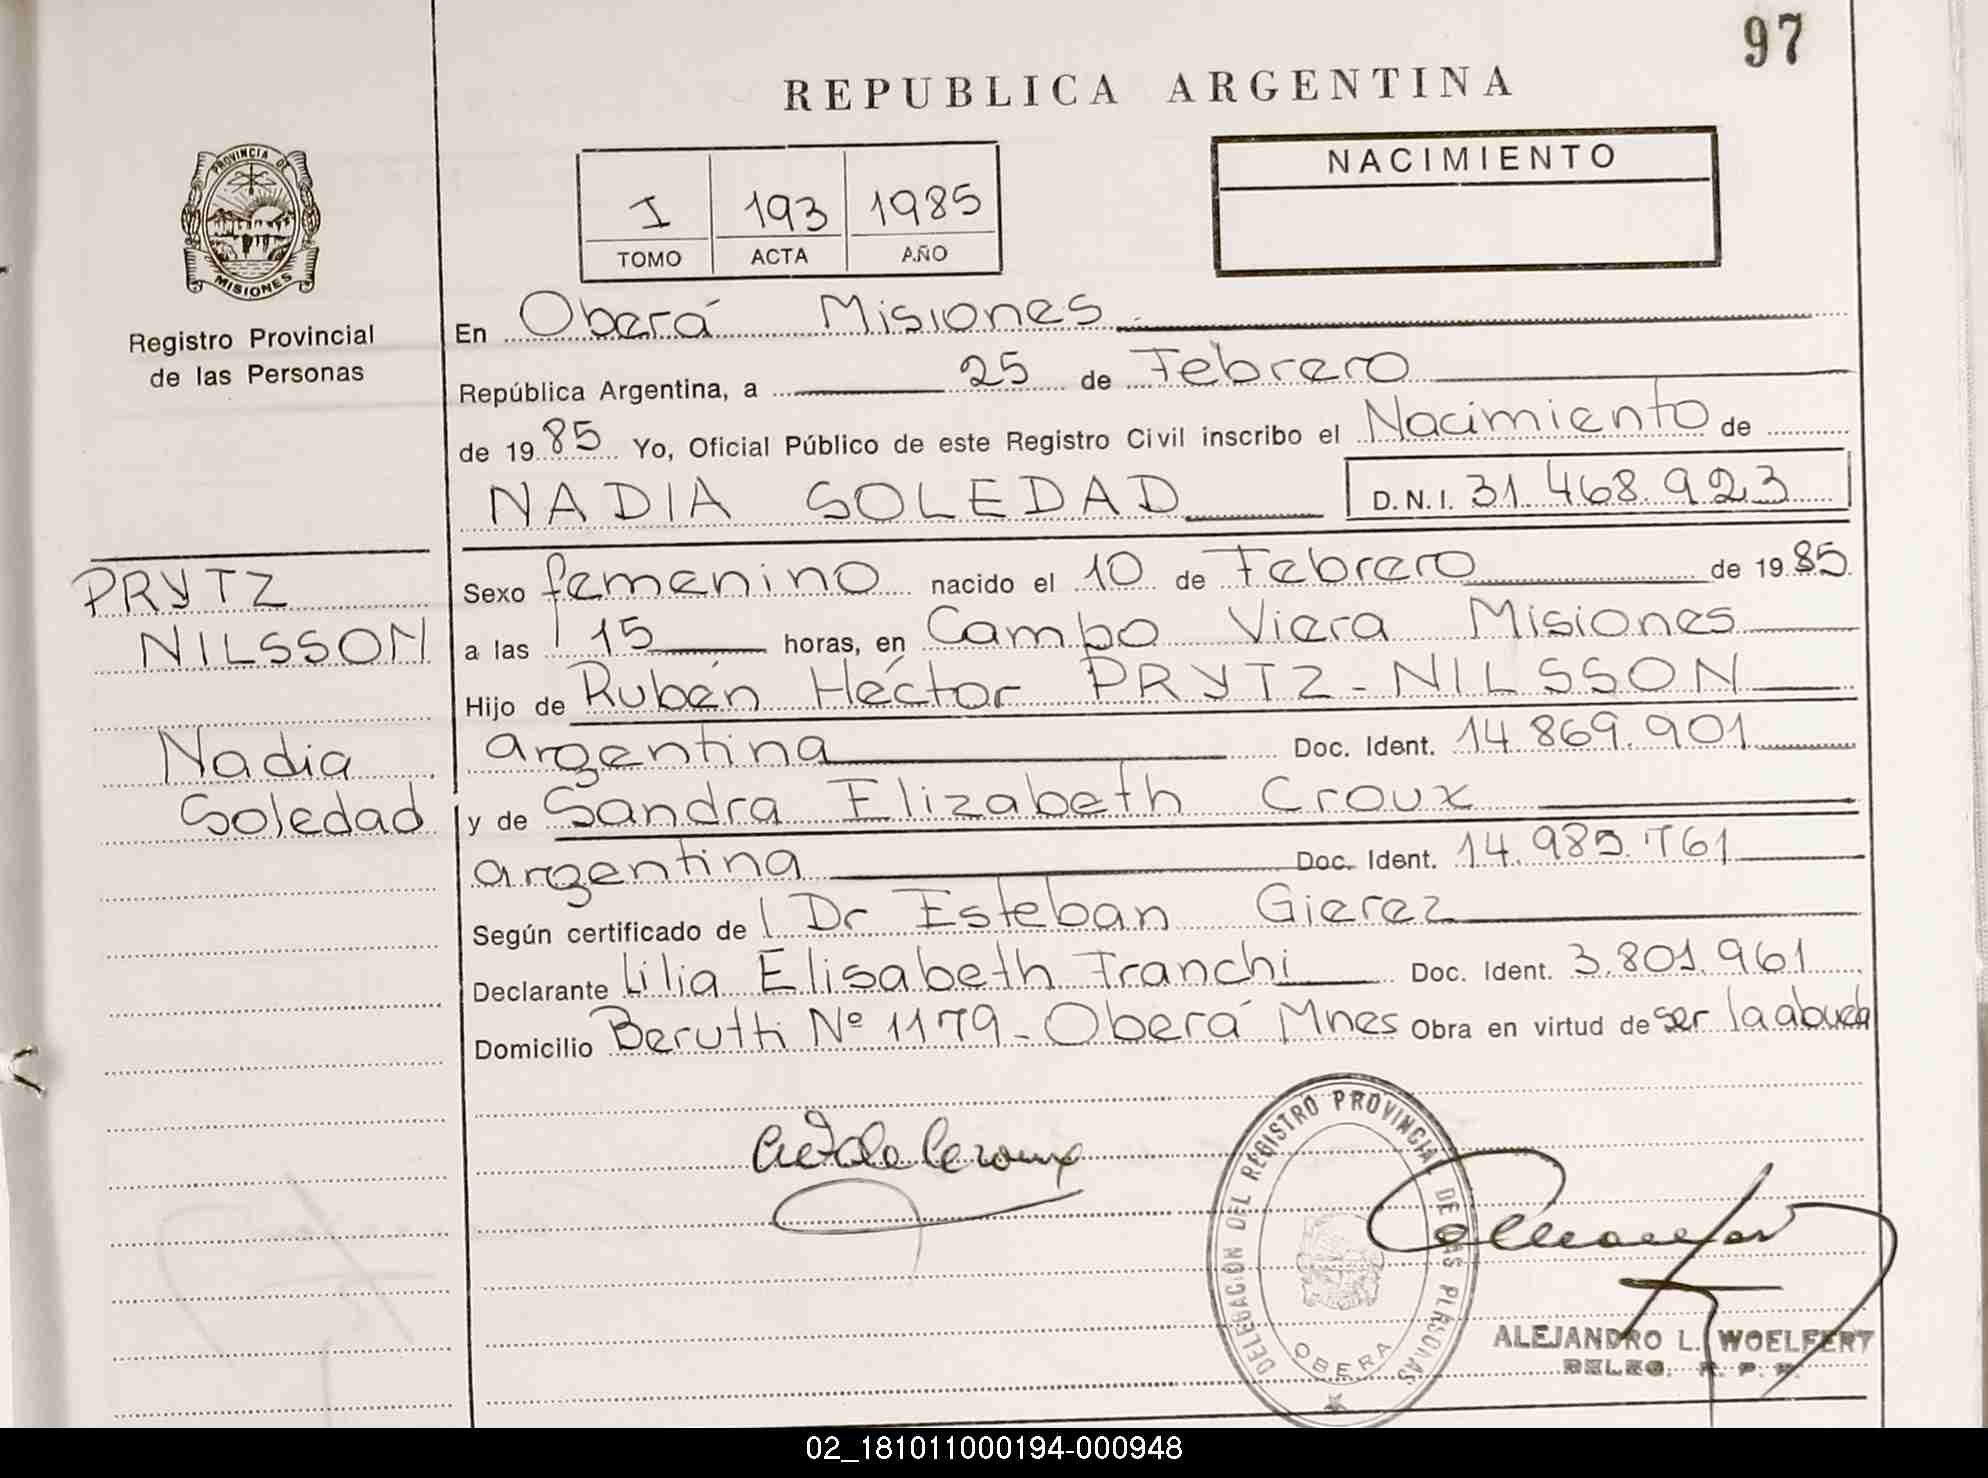 97
REPUBLICA ARGENTINA
PROVINCIA DE
MISIONES
Registro Provincial
de las Personas
I 193 1985
TOMO ACTA AÑO
NACIMIENTO
En Oberá Misiones
República Argentina, a 25 de Febrero
de 1985 Yo, Oficial Público de este Registro Civil inscribo el Nacimiento de
NADIA SOLEDAD D.N.I. 31.468.923
PRYTZ
NILSSON
Nadia
Soledad
Sexo femenino nacido el 10 de Febrero de 1985
a las 15 horas, en Campo Viera Misiones
Hijo de Rubén Héctor PRYTZ-NILSSON
argentina Doc. Ident. 14.869.901
y de Sandra Elizabeth Croux
argentina Doc. Ident. 14.985.761
Según certificado de Dr Esteban Gierez
Declarante Lilia Elisabeth Tranchi Doc. Ident. 3.801.961
Domicilio Berutti Nº 1179 - Oberá Mnes Obra en virtud de ser la abuela
DELEGACION DEL REGISTRO PROVINCIAL DE LAS PERSONAS
OBERA
ALEJANDRO L. WOELFERT
DELEG. R. P. P.
02_181011000194-000948